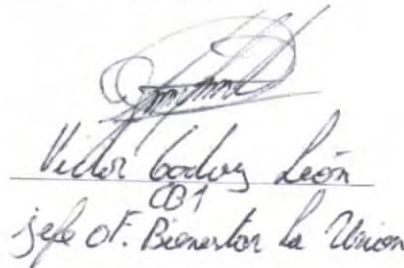 Victor Godoy León
CB1
jefe OF. Bienestar La Union